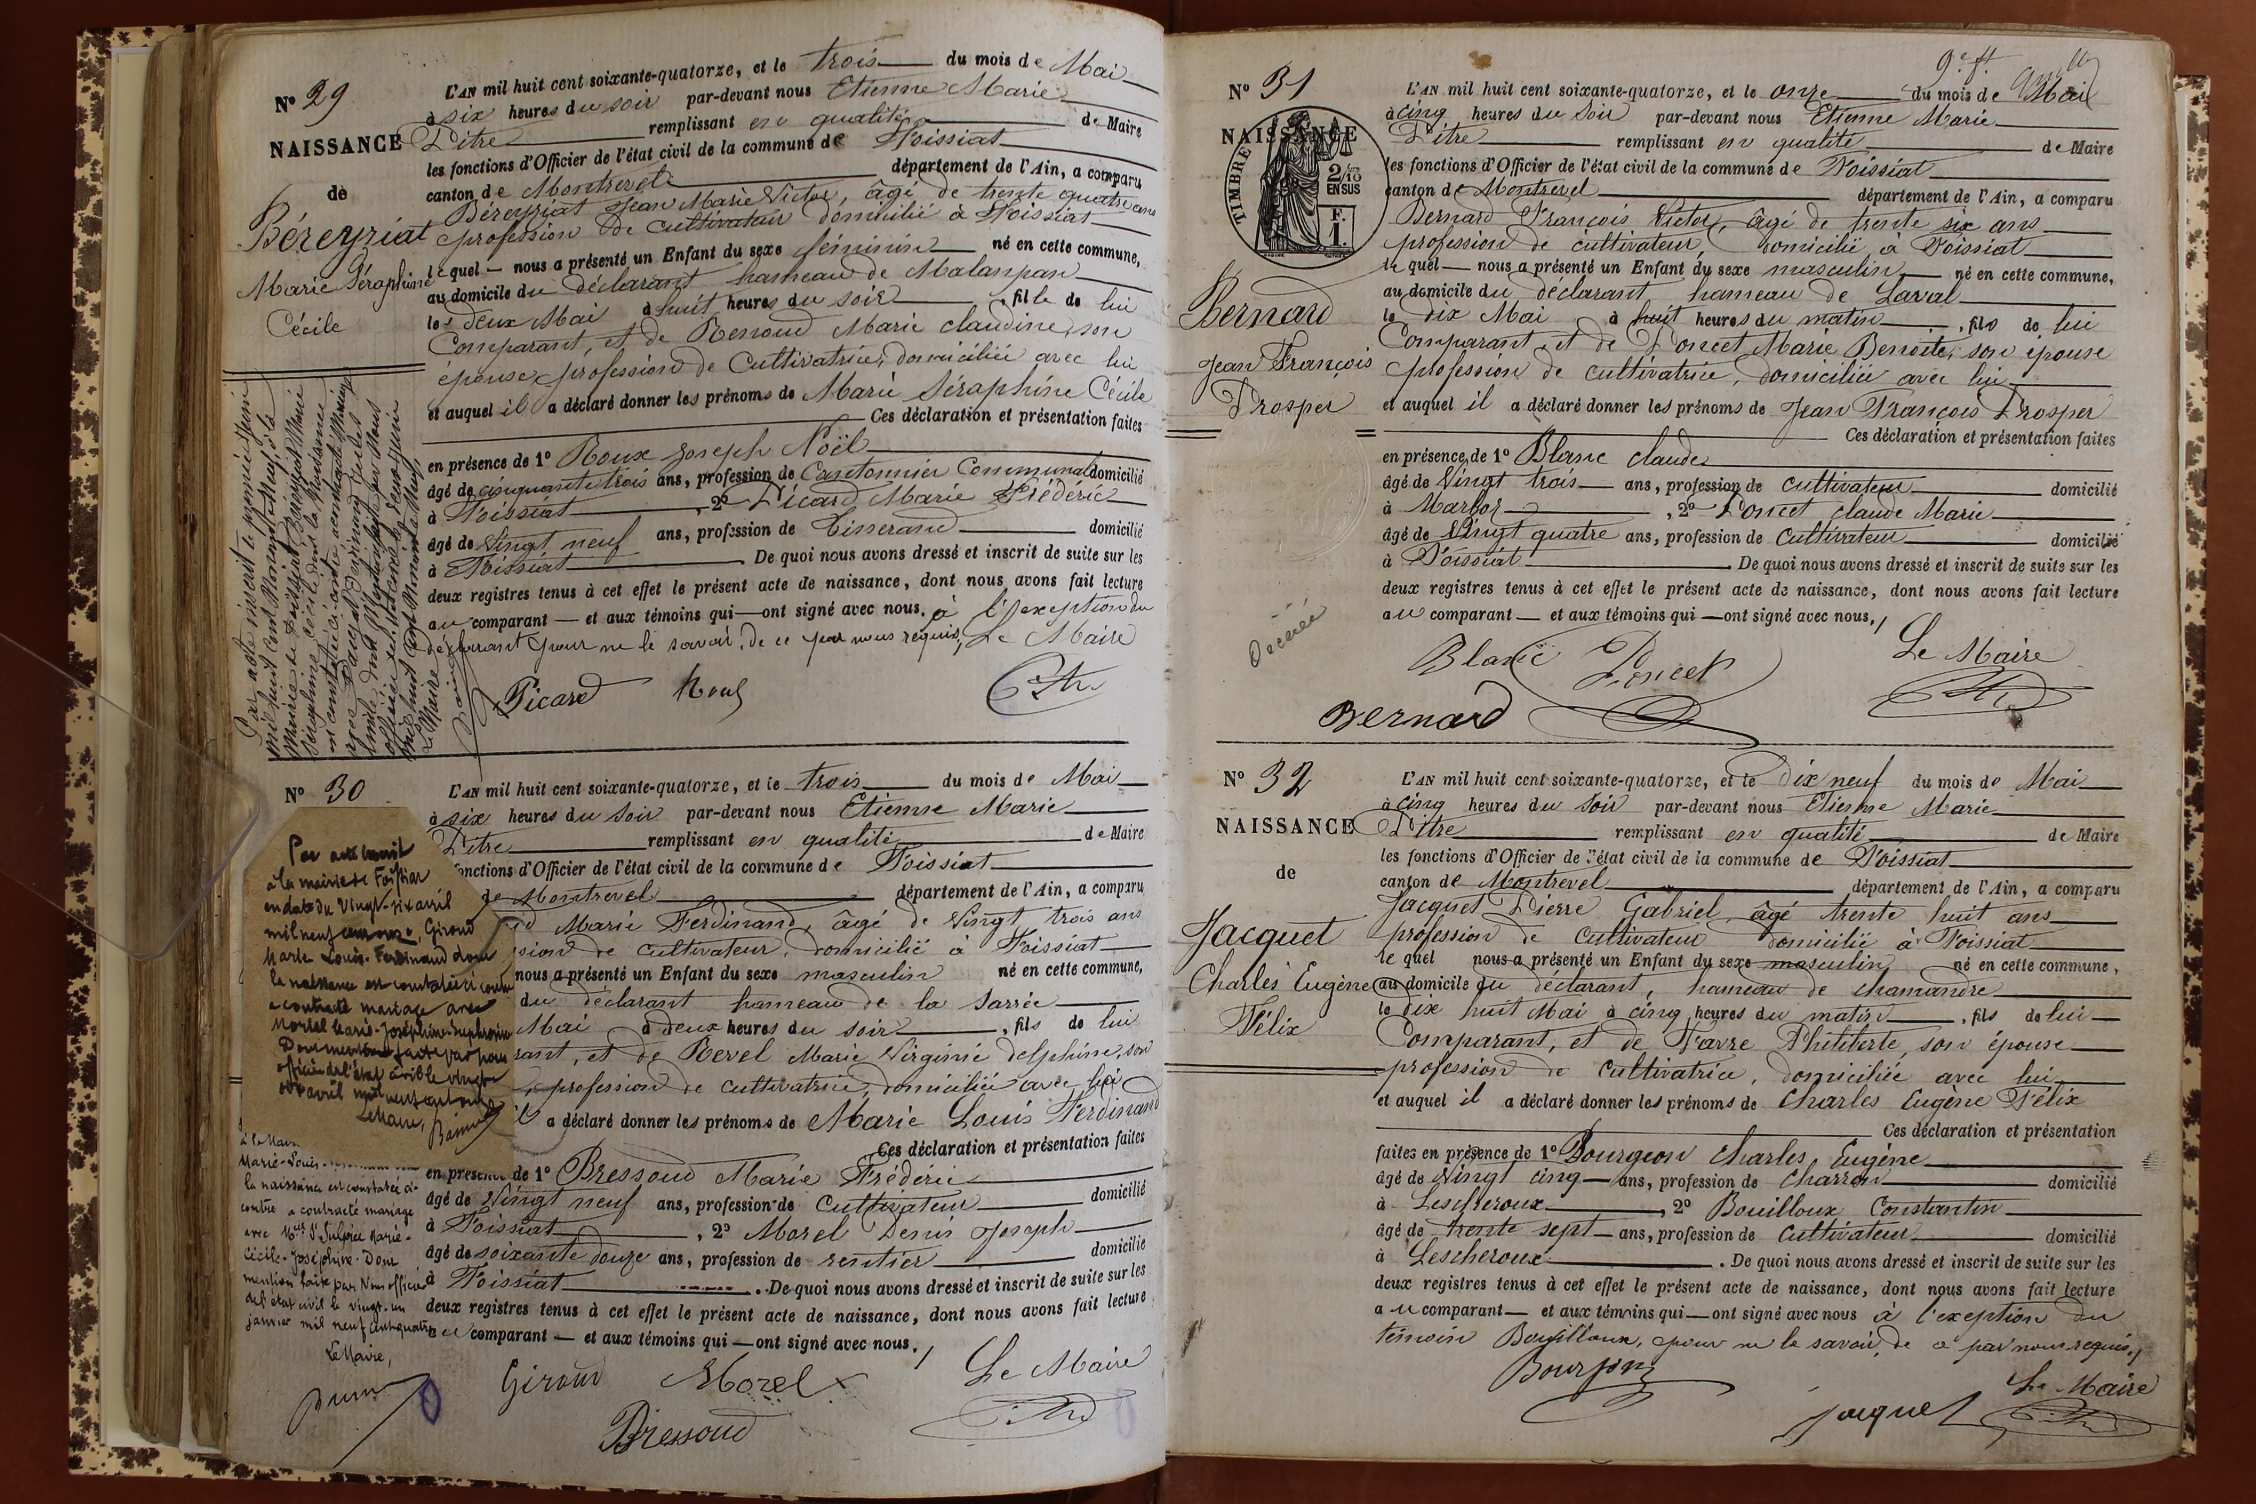 N° 29
NAISSANCE
de
Béreyziat
Marie Séraphine
Cécile
L'AN mil huit cent soixante-quatorze, et le trois du mois de Mai
à six heures du soir par-devant nous Etienne Marie
Pitre remplissant en qualité de Maire
les fonctions d'Officier de l'état civil de la commune de Foissiat
canton de Montrevel département de l'Ain, a comparu
Béreyziat Jean Marie Victor, âgé de trente quatre ans
profession de cultivateur domicilié à Foissiat
lequel nous a présenté un Enfant du sexe féminin né en cette commune,
au domicile du déclarant hameau de Malanpan
le deux Mai à huit heures du soir, fille de lui
Comparant, et de Renoud Marie Claudine, son
épouse, profession de Cultivatrice, domiciliée avec lui
et auquel il a déclaré donner les prénoms de Marie Séraphine Cécile
Ces déclaration et présentation faites
en présence de 1° Roux Joseph Noël
âgé de cinquante trois ans, profession de Cantonnier Communal domicilié
à Foissiat, 2° Picard Marie Frédéric
âgé de Vingt neuf ans, profession de Tisserand domicilié
à Foissiat De quoi nous avons dressé et inscrit de suite sur les
deux registres tenus à cet effet le présent acte de naissance, dont nous avons fait lecture
au comparant et aux témoins qui ont signé avec nous, à l'exception du
déclarant pour ne le savoir, de ce par nous requis, Le Maire
Picard Roux Pitre
Par acte inscrit le premier Juin
mil huit cent à la
Mairie de Foissiat Béreyziat Marie
Séraphine Cécile dont la Naissance
est constatée ci-contre a contracté Mariage
avec
officier de l'état civil le deux Juin
mil huit cent
Le Maire
N° 30
L'AN mil huit cent soixante-quatorze, et le trois du mois de Mai
à six heures du soir par-devant nous Etienne Marie
Pitre remplissant en qualité de Maire
fonctions d'Officier de l'état civil de la commune de Foissiat
de Montrevel département de l'Ain, a comparu
Marie Ferdinand, âgé de Vingt trois ans
sion de cultivateur, domicilié à Foissiat
nous a présenté un Enfant du sexe masculin né en cette commune,
du déclarant hameau de la Sarrée
Mai à deux heures du soir, fils de lui
rant, et de Revel Marie Virginie Delphine, son
profession de cultivatrice, domiciliée avec lui
il a déclaré donner les prénoms de Marie Louis Ferdinand
Ces déclaration et présentation faites
en présence de 1° Bressoud Marie Frédéric
âgé de Vingt neuf ans, profession de Cultivateur domicilié
à Foissiat, 2° Morel Denis Joseph
âgé de soixante douze ans, profession de rentier domicilié
à Foissiat De quoi nous avons dressé et inscrit de suite sur les
deux registres tenus à cet effet le présent acte de naissance, dont nous avons fait lecture
au comparant et aux témoins qui ont signé avec nous.
Le Maire
Giroud Morel
Bressoud Pitre
Par acte inscrit
à la mairie de Foissiat
en date du Vingt-six avril
mil neuf cent onze, Giroud
Marie Louis Ferdinand dont
la naissance est constatée ci contre
a contracté mariage avec
Morel Marie-Joséphine-Euphrosine
Dont mention faite par nous
officier de l'état civil le vingt
avril mil neuf cent onze
Le Maire,
à la Mairie
Marie-Louis-
la naissance est constatée ci-
contre a contracté mariage
avec Marie-
Cécile-Joséphine. Dont
mention faite par Nous officier
de l'état civil le vingt-un
janvier mil neuf cent quatre
Le Maire,
N° 31
TIMBRE
2/10
EN SUS
F.
1.
NAISSANCE
Bernard
Jean François
Prosper
Décédé
L'AN mil huit cent soixante-quatorze, et le onze du mois de Mai
à cinq heures du soir par-devant nous Etienne Marie
Pitre remplissant en qualité de Maire
les fonctions d'Officier de l'état civil de la commune de Foissiat
canton de Montrevel département de l'Ain, a comparu
Bernard François Victor, âgé de trente six ans
profession de cultivateur, domicilié à Foissiat
lequel nous a présenté un Enfant du sexe masculin né en cette commune,
au domicile du déclarant hameau de Laval
le dix Mai à huit heures du matin, fils de lui
Comparant, et de Poncet Marie Benoite, son épouse
profession de cultivatrice, domiciliée avec lui
et auquel il a déclaré donner les prénoms de Jean François Prosper
Ces déclaration et présentation faites
en présence de 1° Blanc Claude
âgé de Vingt trois ans, profession de cultivateur domicilié
à Marboz, 2° Poncet Claude Marie
âgé de Vingt quatre ans, profession de Cultivateur domicilié
à Foissiat De quoi nous avons dressé et inscrit de suite sur les
deux registres tenus à cet effet le présent acte de naissance, dont nous avons fait lecture
au comparant et aux témoins qui ont signé avec nous,
Le Maire
Blanc Poncet
Bernard Pitre
N° 32
NAISSANCE
de
Jacquet
Charles Eugène
Félix
L'AN mil huit cent soixante-quatorze, et le Dix neuf du mois de Mai
à cinq heures du soir par-devant nous Etienne Marie
Pitre remplissant en qualité de Maire
les fonctions d'Officier de l'état civil de la commune de Foissiat
canton de Montrevel département de l'Ain, a comparu
Jacquet Pierre Gabriel, âgé trente huit ans
profession de Cultivateur domicilié à Foissiat
lequel nous a présenté un Enfant du sexe masculin né en cette commune,
au domicile du déclarant, hameau de Chamandre
le dix huit Mai à cinq heures du matin, fils de lui
Comparant, et de Favre Philiberte, son épouse
profession de cultivatrice, domiciliée avec lui
et auquel il a déclaré donner les prénoms de Charles Eugène Félix
Ces déclaration et présentation
faites en présence de 1° Bourgeon Charles Eugène
âgé de Vingt cinq ans, profession de Charron domicilié
à Lescheroux, 2° Bouilloux Constantin
âgé de trente sept ans, profession de Cultivateur domicilié
à Lescheroux. De quoi nous avons dressé et inscrit de suite sur les
deux registres tenus à cet effet le présent acte de naissance, dont nous avons fait lecture
au comparant et aux témoins qui ont signé avec nous à l'exception du
témoin Bouilloux, pour ne le savoir, de ce par nous requis,
Le Maire
Bourgeon
Jacquet Pitre